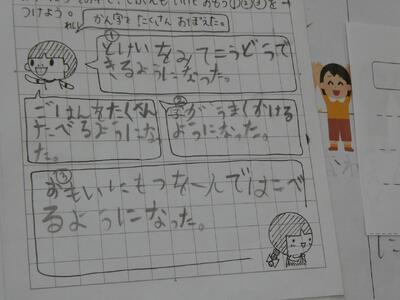 つけよう。
れい
かん字をたくさんおぼえた。
①
とけいをみてこうどうで
きるようになった。
ごはんをたくさん
たべるようになっ
た。
②
字がうまくかける
ようになった。
③
おもいにもつを一人ではこべ
るようになった。